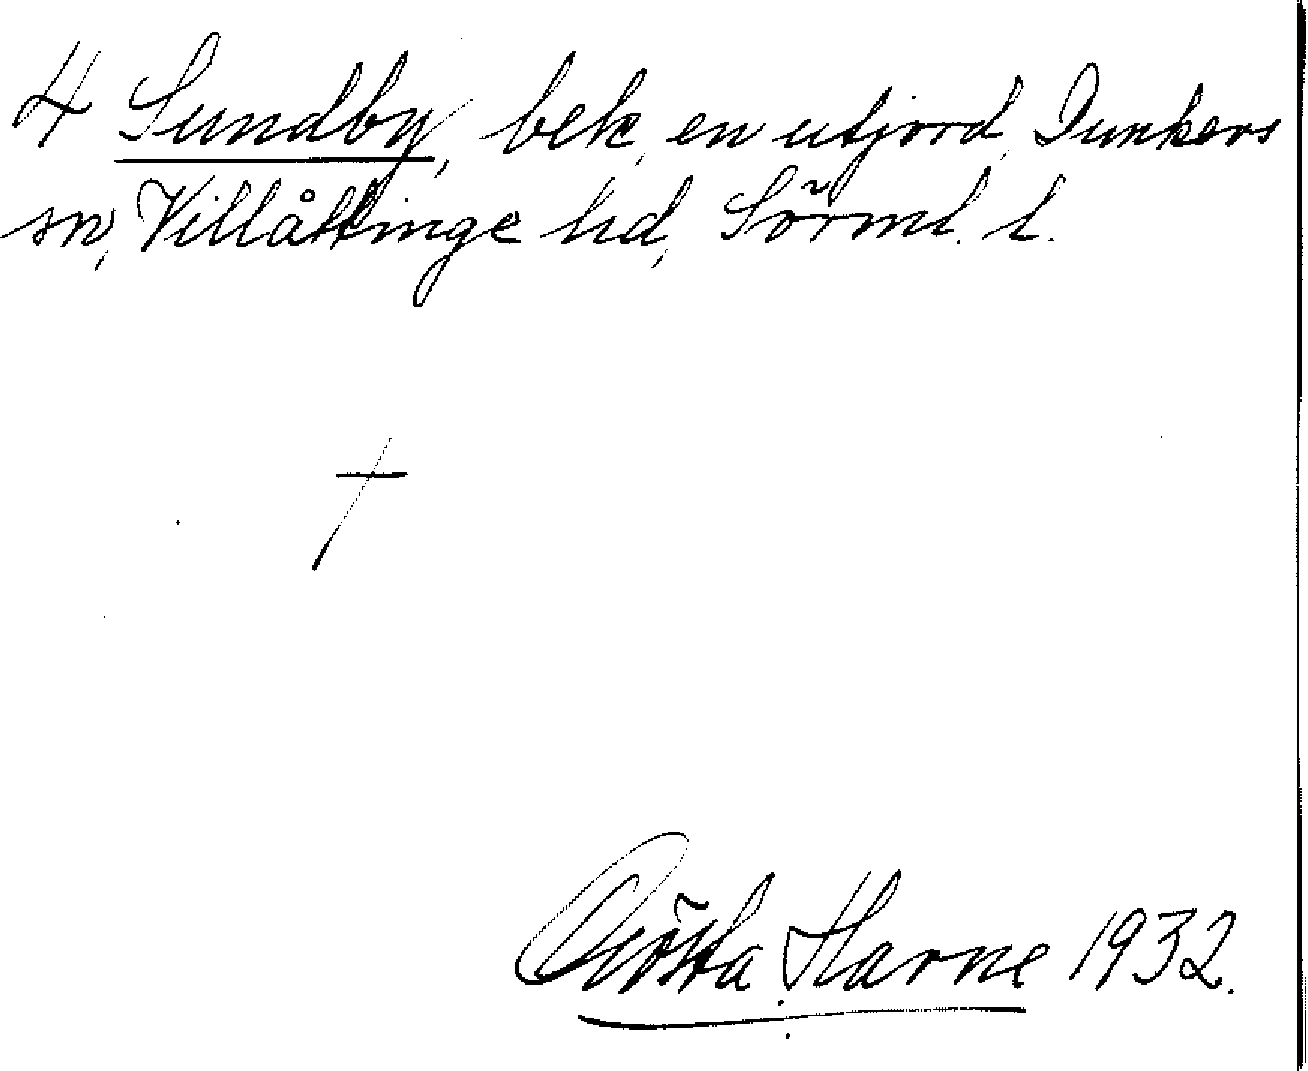 4 Sundby, bek. en utjord, Dunkers
sn, Villåttinge hd, Sörml. l.
†
Gösta Harne 1932.